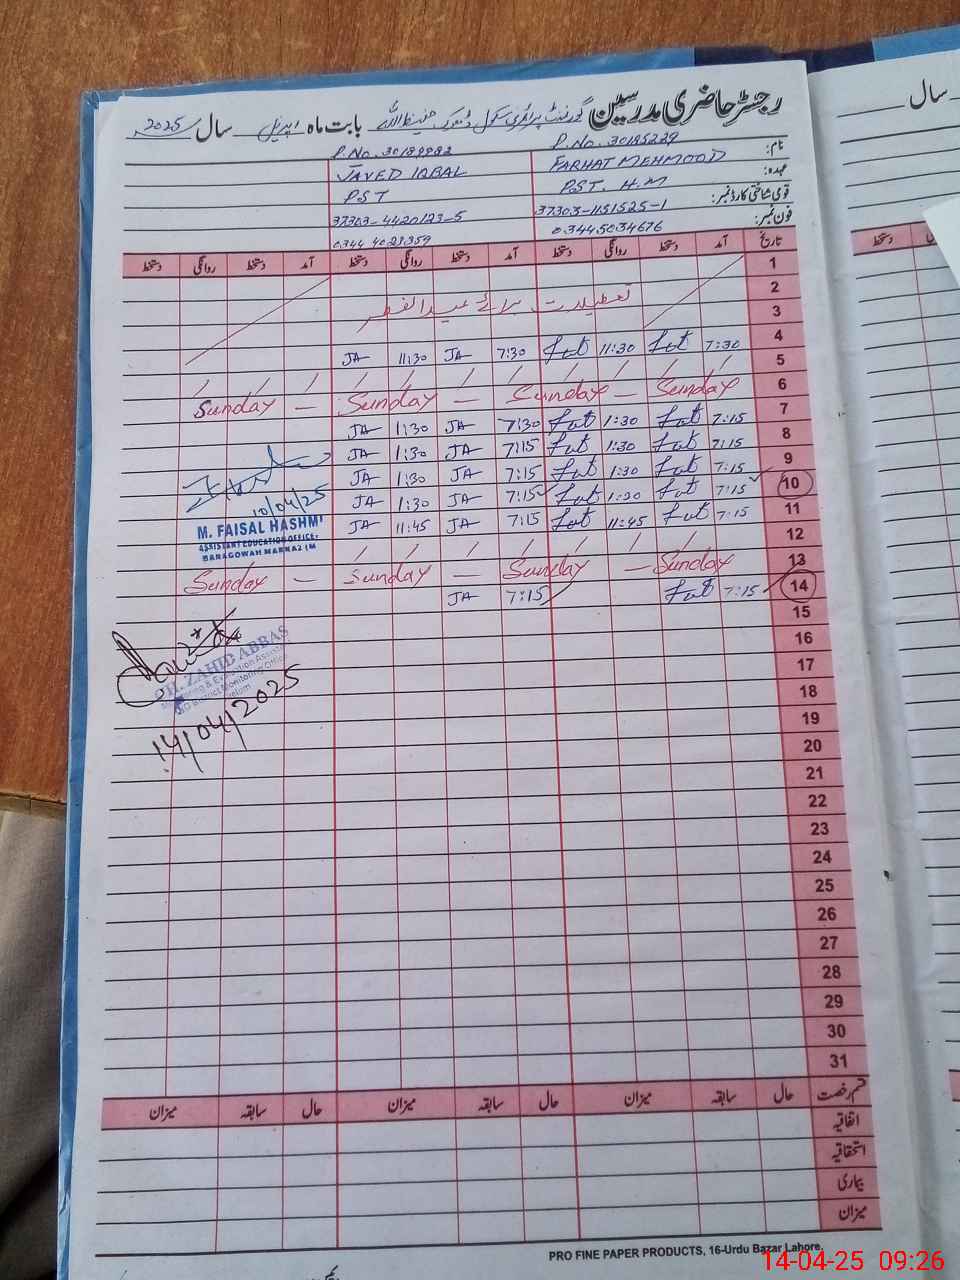 رجسٹر حاضری مدرسین گورنمنٹ پرائمری سکول ڈھوک حفیظ اللہ بابت ماہ اپریل سال 2025
سال
نام: P.No. 30185229 P.No. 30189982
FARHAT MEHMOOD JAVED IQBAL
عہدہ: PST. H.M PST
قومی شناختی کارڈ نمبر: 37303-1151525-1 37303-4420123-5
فون نمبر: 03445034676 0344 4023359
تاریخ آمد دستخط روانگی دستخط آمد دستخط روانگی دستخط آمد دستخط روانگی دستخط
دستخط
1
2
تعطیلات برائے عیدالفطر
3
4 7:30 Fat 11:30 Fat 7:30 JA 11:30 JA
5
6 Sunday — Sunday — Sunday — Sunday
7 7:15 Fat 1:30 Fat 7:30 JA 1:30 JA
8 7:15 Fat 1:30 Fat 7:15 JA 1:30 JA
9 7:15 Fat 1:30 Fat 7:15 JA 1:30 JA
10 7:15 Fat 1:30 Fat 7:15 JA 1:30 JA
11 7:15 Fat 11:45 Fat 7:15 JA 11:45 JA
12
13 Sunday — Sunday — Sunday — Sunday
14 7:15 Fat 7:15 JA
10/04/25
M. FAISAL HASHMI
ASSISTANT EDUCATION OFFICER,
BARAGOWAH MARKAZ JM
15
16
CH. ZAHID ABBAS
Monitoring & Evaluation Assistant
District Monitoring Office
Jhelum
14/04/2025
17
18
19
20
21
22
23
24
25
26
27
28
29
30
31
قسم رخصت حال سابقہ میزان حال سابقہ میزان حال سابقہ میزان
اتفاقیہ
استحقاقیہ
بیماری
میزان
PRO FINE PAPER PRODUCTS, 16-Urdu Bazar Lahore.
14-04-25 09:26